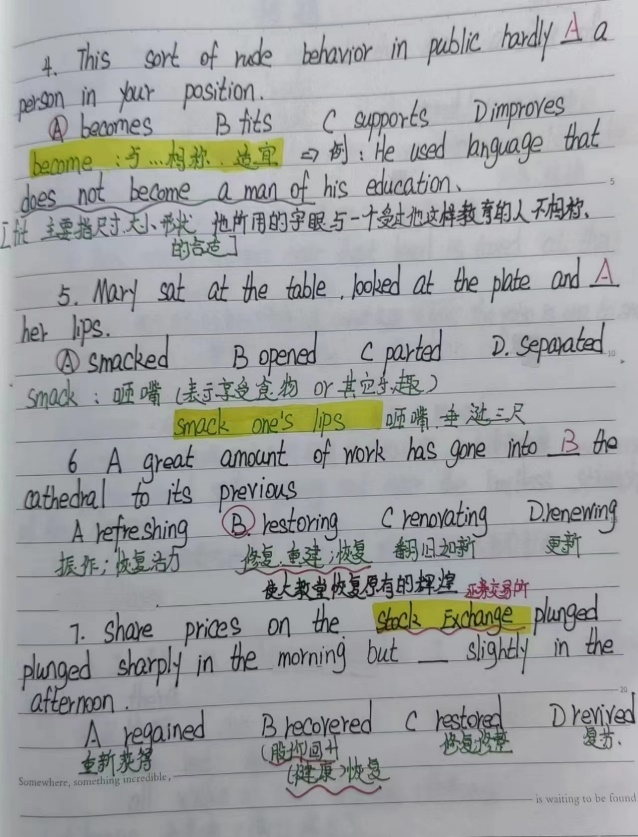 4. This sort of rude behavior in public hardly A a
person in your position.
A becomes B fits C supports D improves
become : 与...相称、适宜 => 例: He used language that
does not become a man of his education.
[fit 主要指尺寸、大小、形状 他所用的字眼与一个受过他这样教育的人不相称.
的合适]
5. Mary sat at the table, looked at the plate and A
her lips.
A smacked B opened C parted D. separated.
smack : 咂嘴 (表示享受食物 or 其它乐趣)
smack one's lips 咂嘴、垂涎三尺
6 A great amount of work has gone into B the
cathedral to its previous
A refreshing B. restoring C renovating D.renewing
振作; 恢复活力 修复、重建; 恢复 翻旧如新 更新
使大教堂恢复原有的辉煌 证券交易所
7. Share prices on the Stock Exchange plunged
plunged sharply in the morning but __ slightly in the
afternoon.
A regained B recovered C restored D revived
重新获得 (股价回升 修复 复苏.
(健康)恢复
Somewhere, something incredible,
is waiting to be found
5
10
20